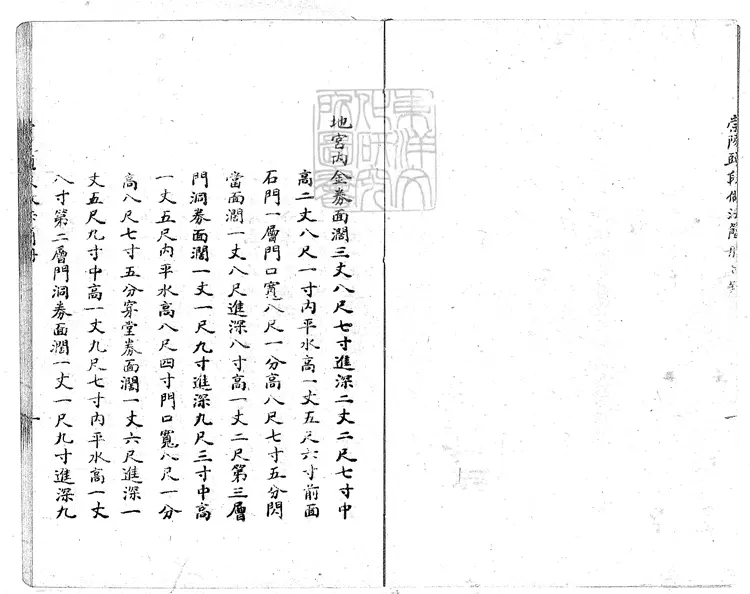 崇陵頭段做法
東洋文
化研究
所圖書
地宮内金券面濶三丈八尺七寸進深二丈二尺七寸中
高二丈八尺一寸内平水高一丈五尺六寸前面
石門一層門口寬八尺一分高八尺七寸五分閃
當面濶一丈八尺進深八寸高一丈二尺第三層
門洞券面濶一丈一尺九寸進深九尺三寸中高
一丈五尺内平水高八尺四寸門口寬八尺一分
高八尺七寸五分穿堂券面濶一丈六尺進深一
丈五尺九寸中高一丈九尺七寸内平水高一丈
八寸第二層門洞券面濶一丈一尺九寸進深九
一
一